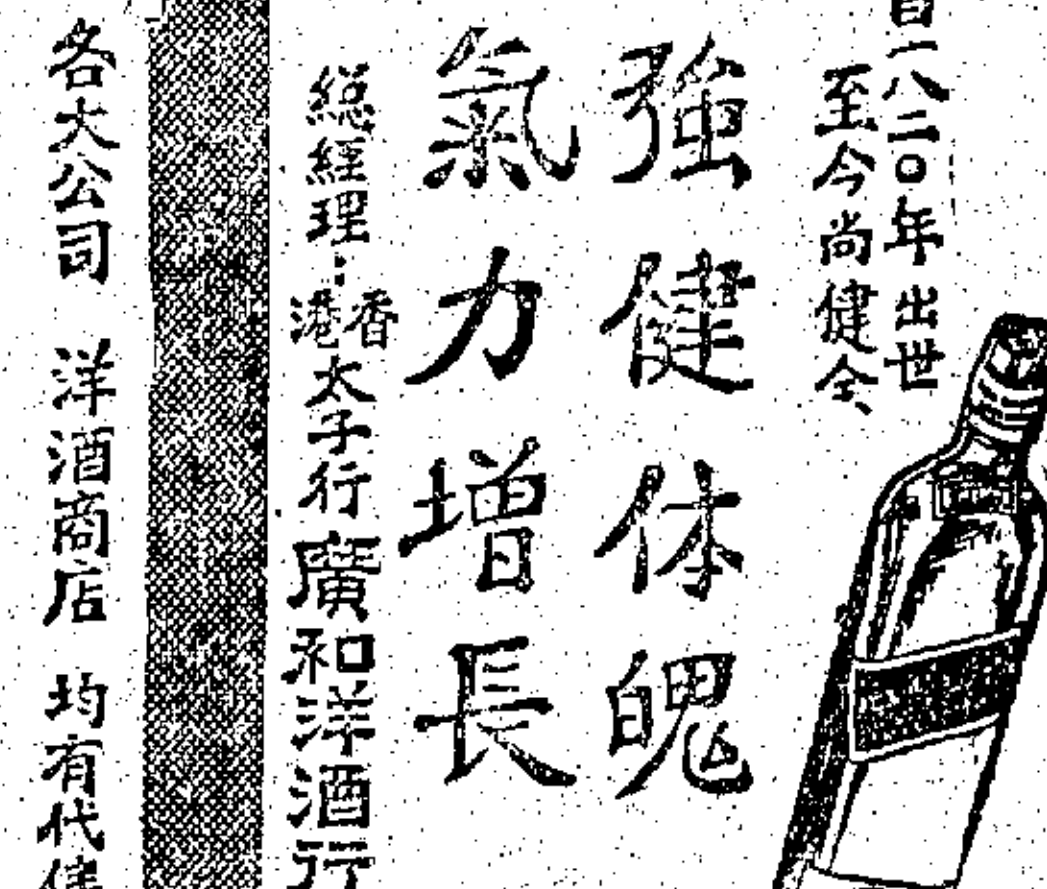 自一八二〇年出世
至今尚健全
強健体魄
氣力增長
總經理：香港太子行廣和洋酒行
各大公司 洋酒商店 均有代售